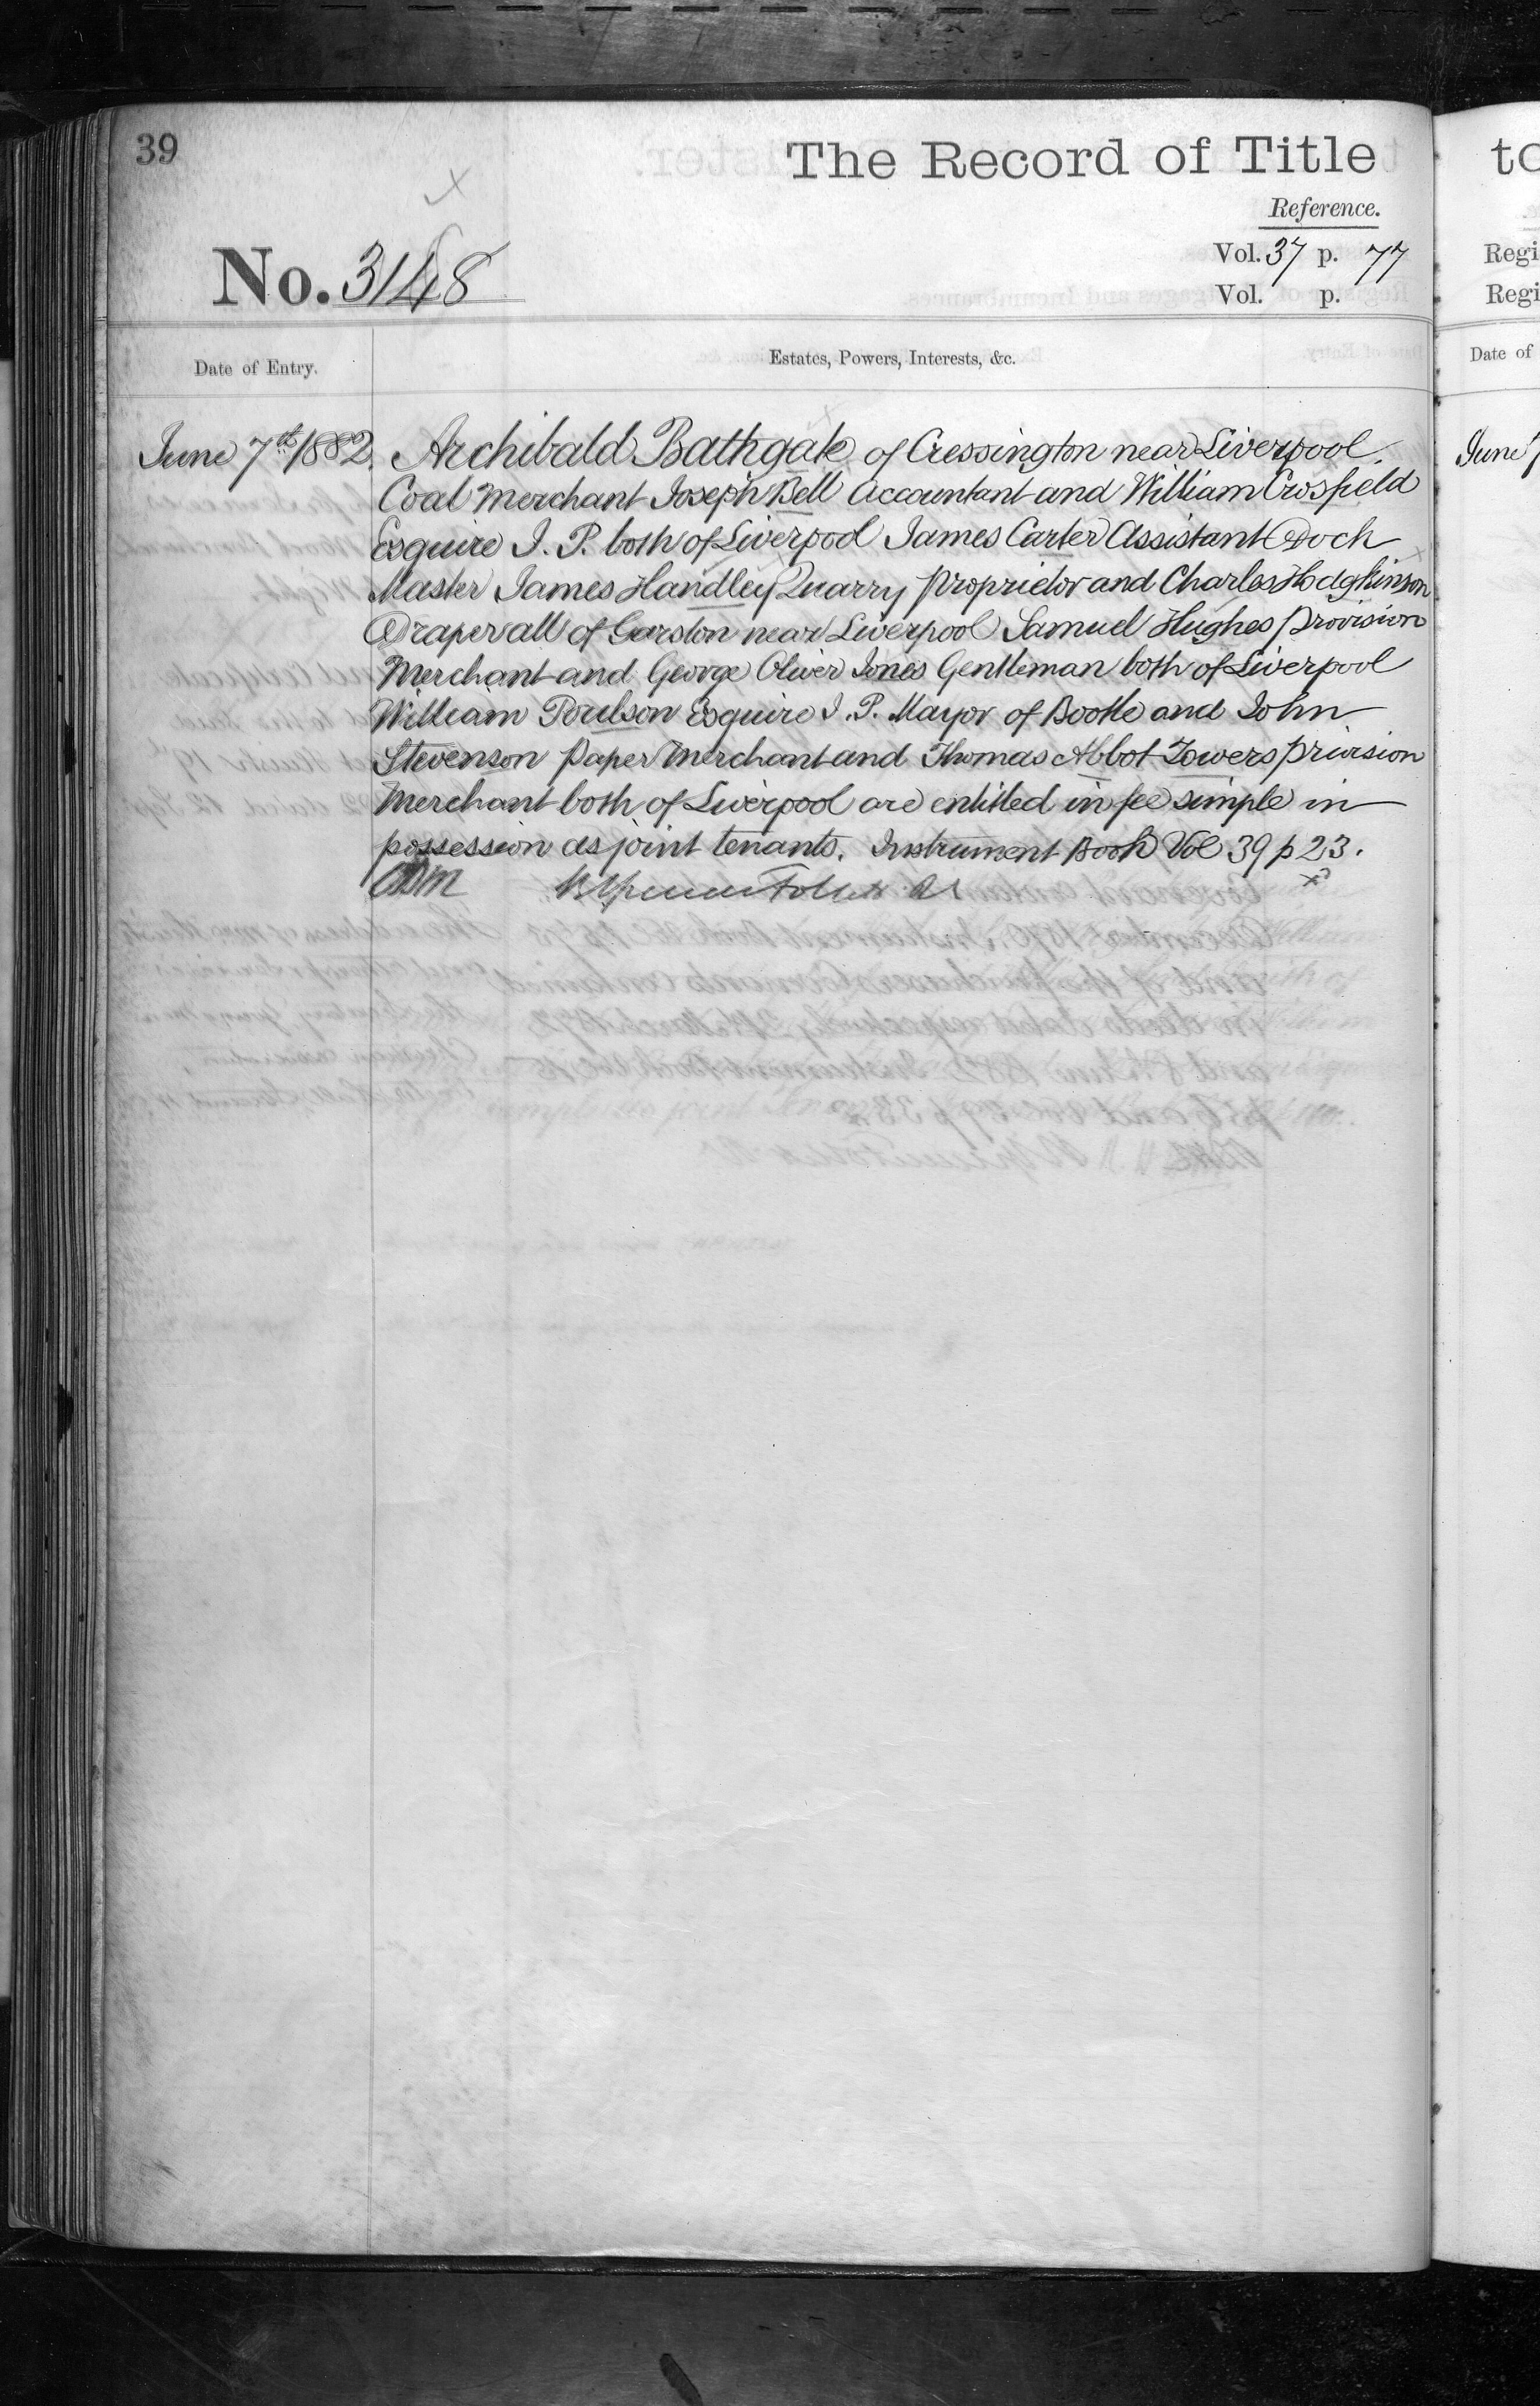 39
The Record of Title
Reference.
No. 3148
Vol. 37 p. 77
Vol. p.
Date of Entry.
Estates, Powers, Interests, &c.
June 7th 1882. Archibald Bathgate of Cressington near Liverpool
Coal Merchant Joseph Bell Accountant and William Crosfield
Esquire J. P. both of Liverpool James Carter Assistant Dock
Master James Handley Quarry Proprietor and Charles Hodgkinson
Draper all of Garston near Liverpool Samuel Hughes Provision
Merchant and George Oliver Jones Gentleman both of Liverpool
William Poulson Esquire J. P. Mayor of Bootle and John
Stevenson Paper Merchant and Thomas Abbot Towers Privision
Merchant both of Liverpool are entitled in fee simple in
possession as joint tenants. Instrument Book Vol 39 p 23.
to
Regi
Regi
Date of
June 7